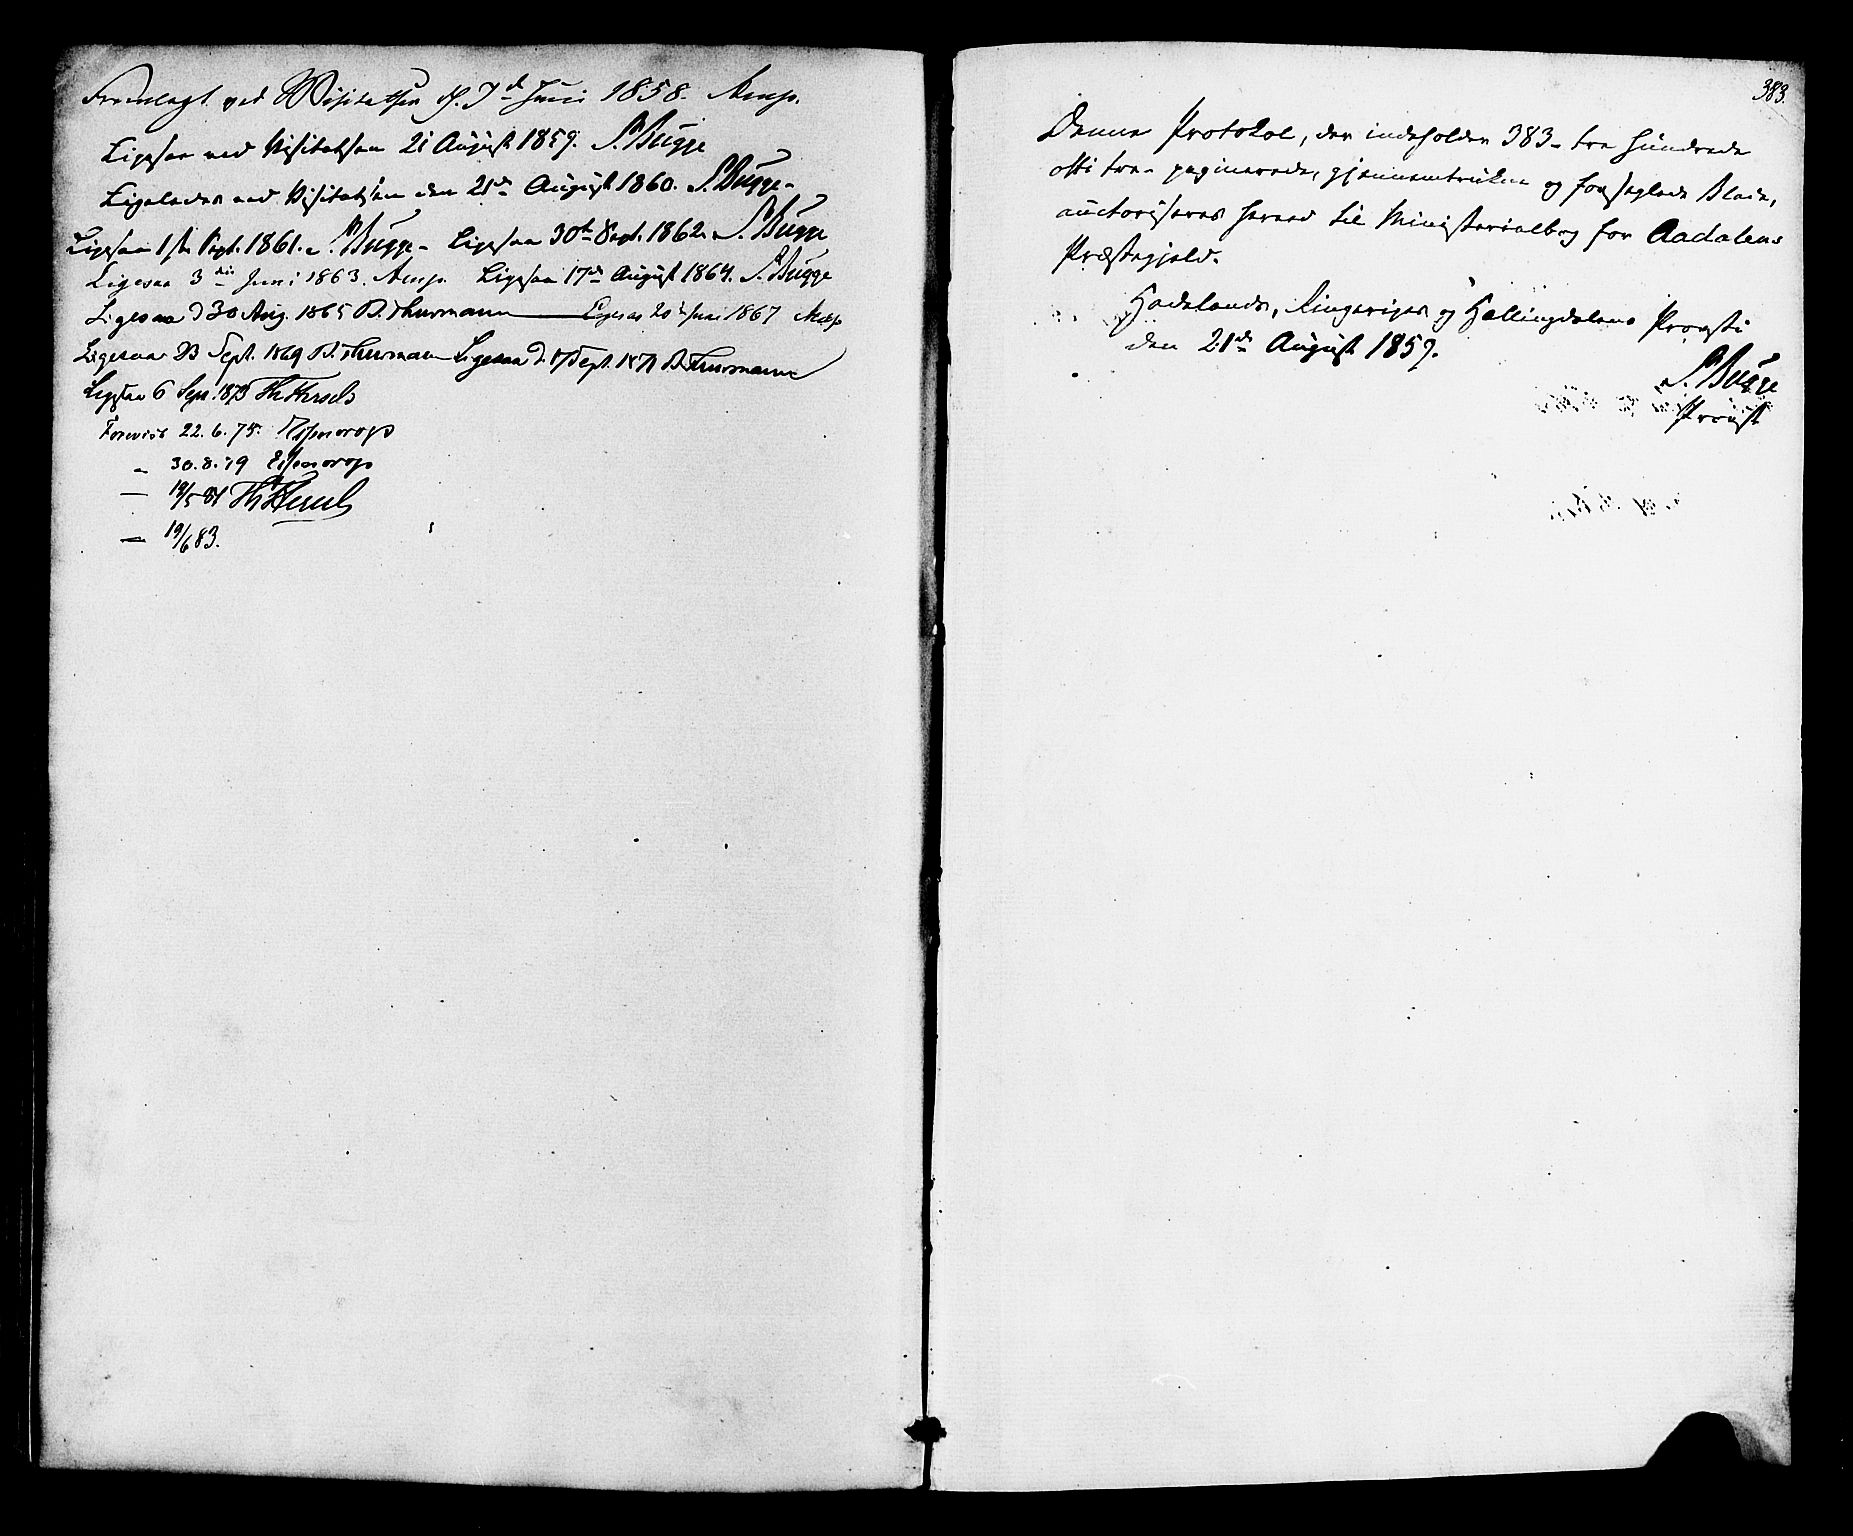 Fremlagt ved Visitatsen d. 7d Juni 1858. Arup.
Ligesaa ved Visitatsen 21 August 1859. S. Bugge
Ligeledes ved Visitatsen den 21de August 1860. S. Bugge
Ligesaa 1ste Sept. 1861. S. Bugge - Ligesaa 30te Sept. 1862. S. Bugge
Ligesaa 3die Juni 1863. Arup. Ligesaa 17de August 1864. S. Bugge
Ligesaa d 30 Aug. 1865 D. Thurmann Ligesaa 20 Juni 1867 Arup
Ligesaa 23 Sept. 1869 D. Thurmann Ligesaa d. 17 Sept. 1871 D. Thurmann
Ligesaa 6 Sept. 1873 Th. Kierulf
Forevist 22.6.75. Essendrop
" 30.8.79 Essendrop
— 18/5 81 Th Kierulf
— 19/6 83.
383.
Denne Protokol, der indeholder 383 - tre hundrede
otti tre - paginerede, gjennemtrukne og forseglede Blade,
auctoriseres herved til Ministerialbog for Aadalens
Præstegjeld.
Hadelands, Ringeriges og Hallingdalens Provsti
den 21de August 1859.
S. Bugge
Provst